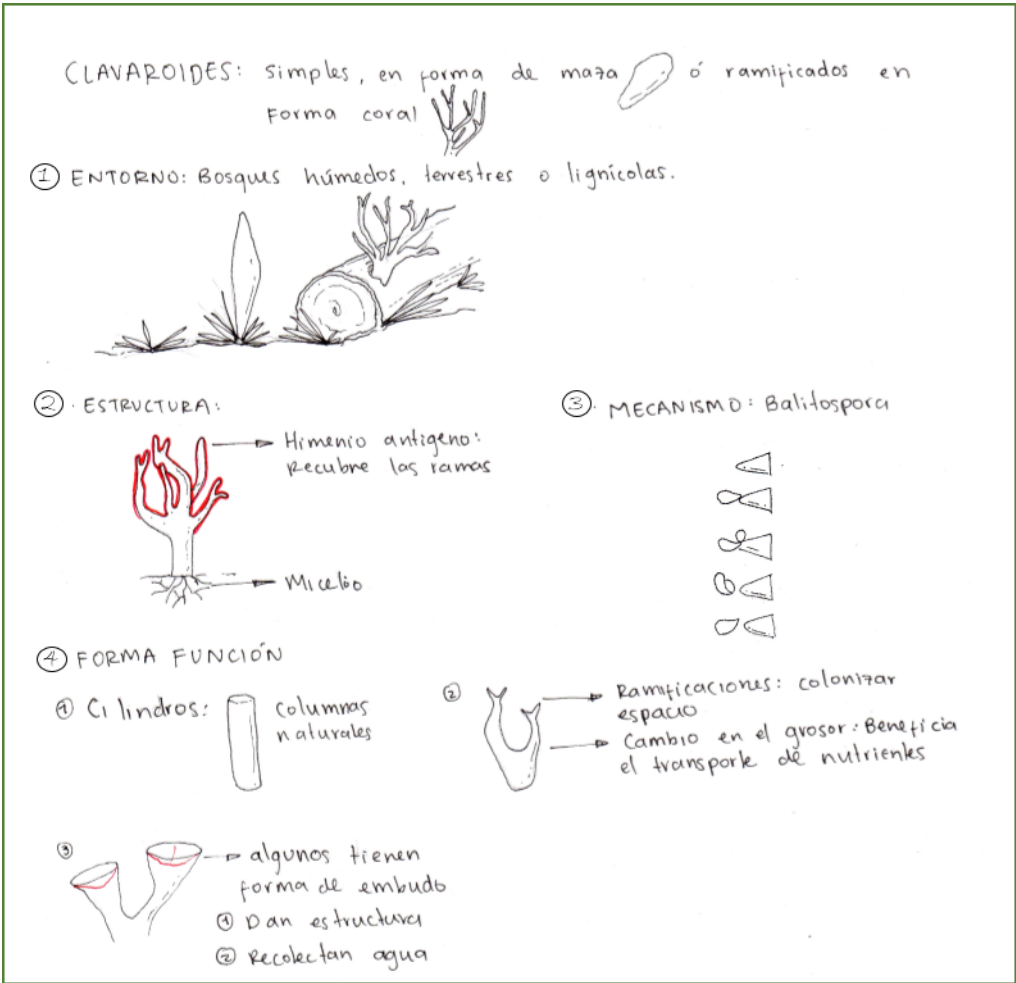 CLAVAROIDES: simples, en forma de maza ó ramificados en
Forma coral
① ENTORNO: Bosques húmedos, terrestres o lignícolas.
② · ESTRUCTURA:
Himenio antigeno:
Recubre las ramas
Micelio
③· MECANISMO: Balitospora
④ FORMA FUNCIÓN
① Cilindros: columnas
naturales
② Ramificaciones: colonizar
espacio
Cambio en el grosor: Beneficia
el transporte de nutrientes
③ algunos tienen
forma de embudo
① Dan estructura
② Recolectan agua